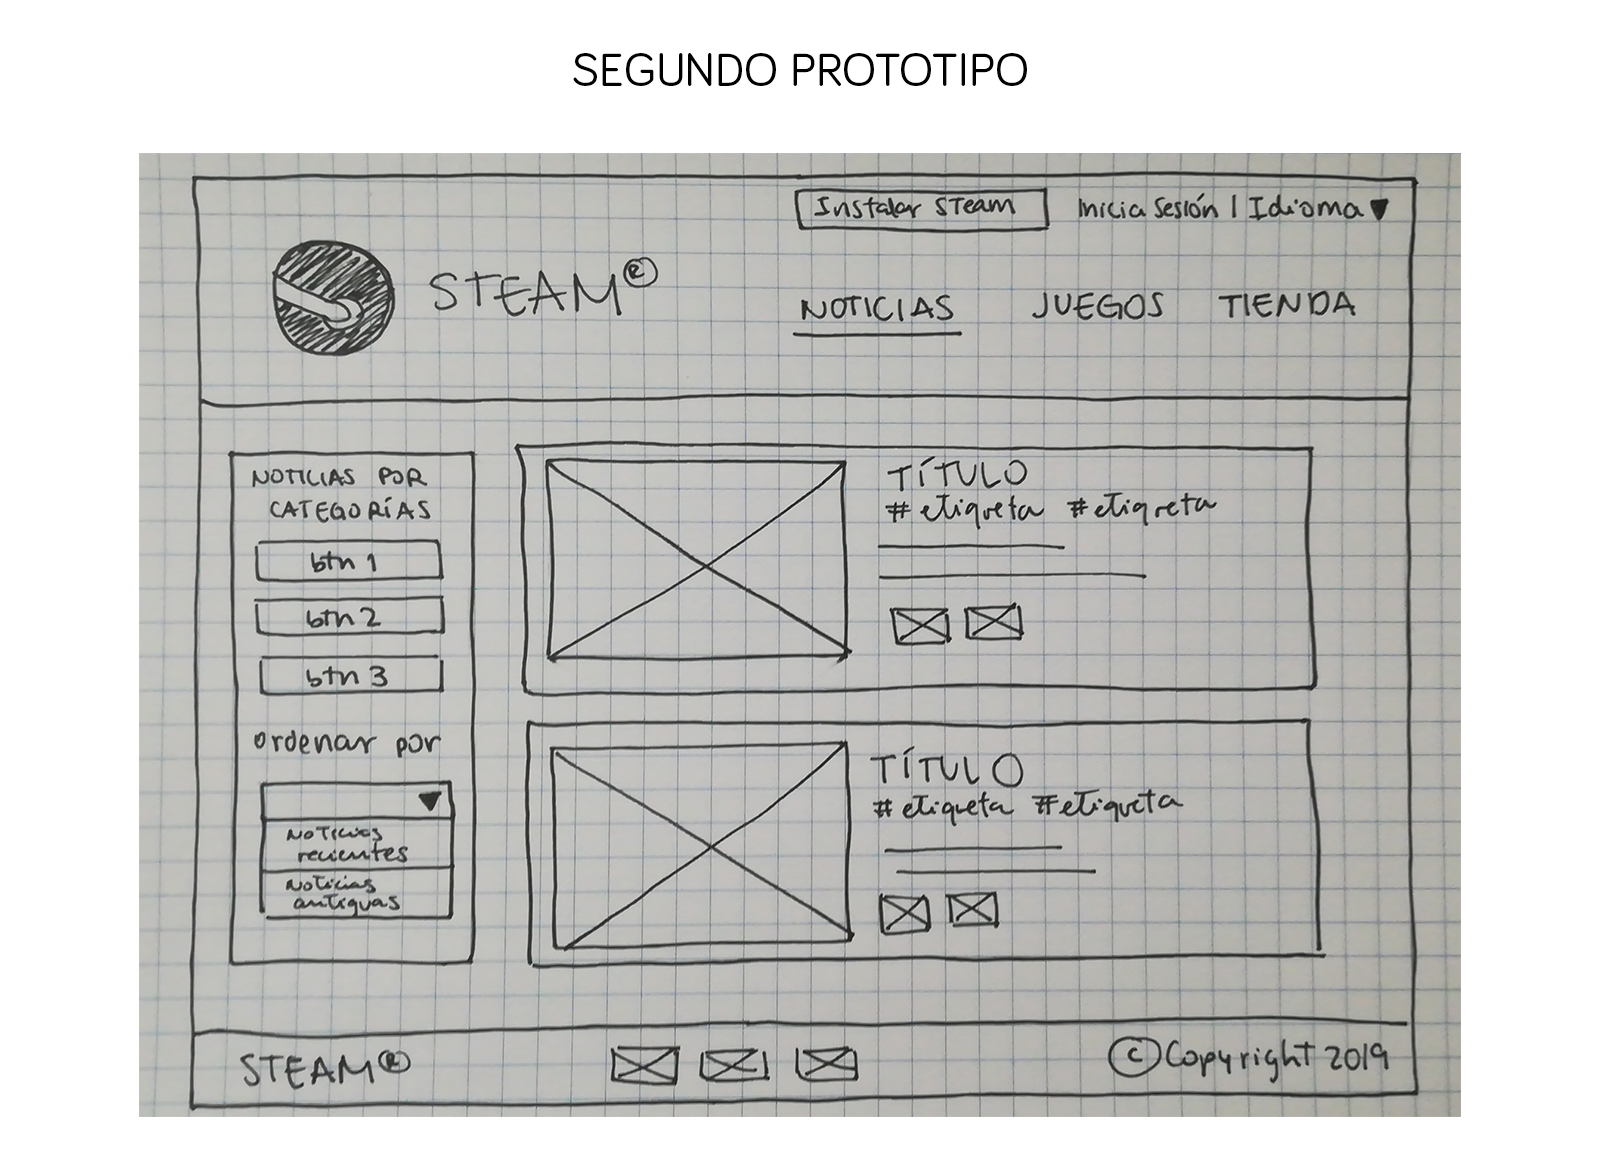 SEGUNDO PROTOTIPO
Instalar Steam
Inicia Sesión | Idioma
STEAM®
NOTICIAS JUEGOS TIENDA
NOTICIAS POR
CATEGORÍAS
btn 1
btn 2
btn 3
ordenar por
Noticias
recientes
Noticias
antiguas
TÍTULO
#etiqueta #etiqueta
TÍTULO
#etiqueta #etiqueta
STEAM®
© Copyright 2019